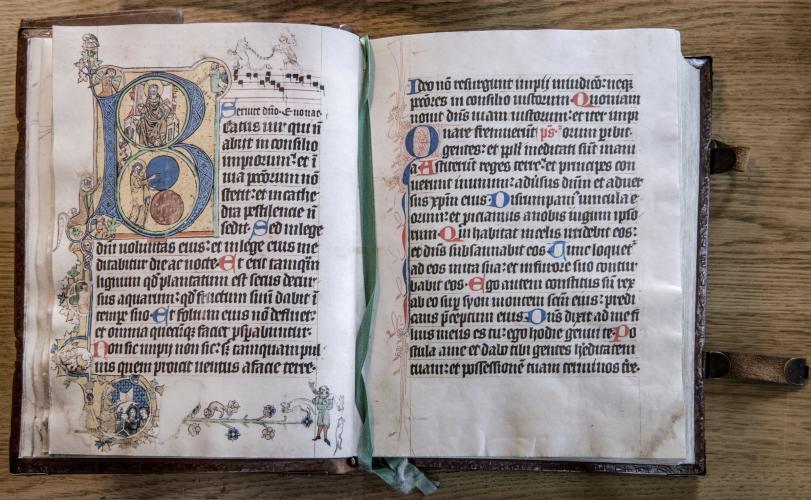 Seruite dño. Euouae.
B
eatus uir qui ñ
abiit in consilio
impiorum: et ī
uia pctorum nō
stetit: et in cathe
dra pestilencie ñ
sedit. Sed in lege
dñi uoluntas eius: et in lege eius me
ditabitur die ac nocte. Et erit tamq̄m
lignum qd̓ plantatum est secus decur
sus aquarum: qd̓ fructum suū dabit ī
tempe suo. Et folium eius nō defluet:
et omnia quecūq; faciet psṗabuntur.
Non sic impij non sic: sƺ tamquam pul
uis quem proicit uentus a facie terre.
Ideo nō resurgunt impij in iudico: neq;
pctōres in consilio iustorum. Quoniam
nouit dñs uiam iustorum: et iter impi
orum peribit.
Quare fremuerūt ps̄.
gentes: et ppli meditati sūt inani
a. Astiterūt reges terre: et principes con
uenerunt in unum: aduersus dñm et aduer
sus xp̄m eius. Disrumpam᷒ uincula e
orum: et piciamus a nobis iugum ipso
rum. Qui habitat in celis irridebit eos:
et dñs subsannabit eos. Tunc loquet᷑
ad eos in ira sua: et in furore suo contur
babit eos. Ego autem constitus sū rex
ab eo sup syon montem scm̄ eius: predi
cans p̄ceptum eius. Dñs dixit ad me fi
lius meus es tu: ego hodie genui te. Po
stula a me et dabo tibi gentes heditatem
tuam: et possessionē tuam terminos tre.